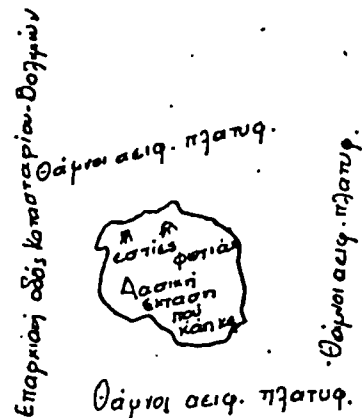 Επαρχιακή οδός Καταστάριου-Βολιμών
Θάμνοι αειφ. πλατυφ.
εστίες φωτιάς
Δασική
έκταση
που
κάηκε
Θάμνοι αειφ. πλατυφ.
Θάμνοι αειφ. πλατυφ.